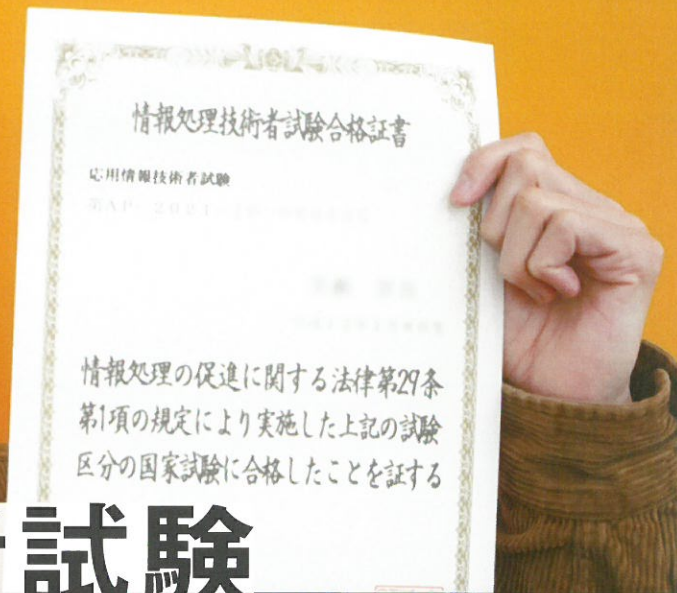 情報処理技術者試験合格証書
応用情報技術者試験
情報処理の促進に関する法律第29条
第1項の規定により実施した上記の試験
区分の国家試験に合格したことを証する
試験